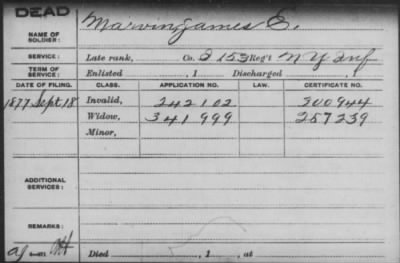 DEAD
NAME OF SOLDIER: Marvin, James E.
SERVICE: Late rank, Co. I 153 Reg't N Y Inf
TERM OF SERVICE: Enlisted , 1 Discharged , 1
DATE OF FILING. CLASS. APPLICATION NO. LAW. CERTIFICATE NO.
1877 Sept 18 Invalid, 242102 200944
Widow, 341999 257239
Minor,
ADDITIONAL SERVICES:
REMARKS:
Died , 1 , at